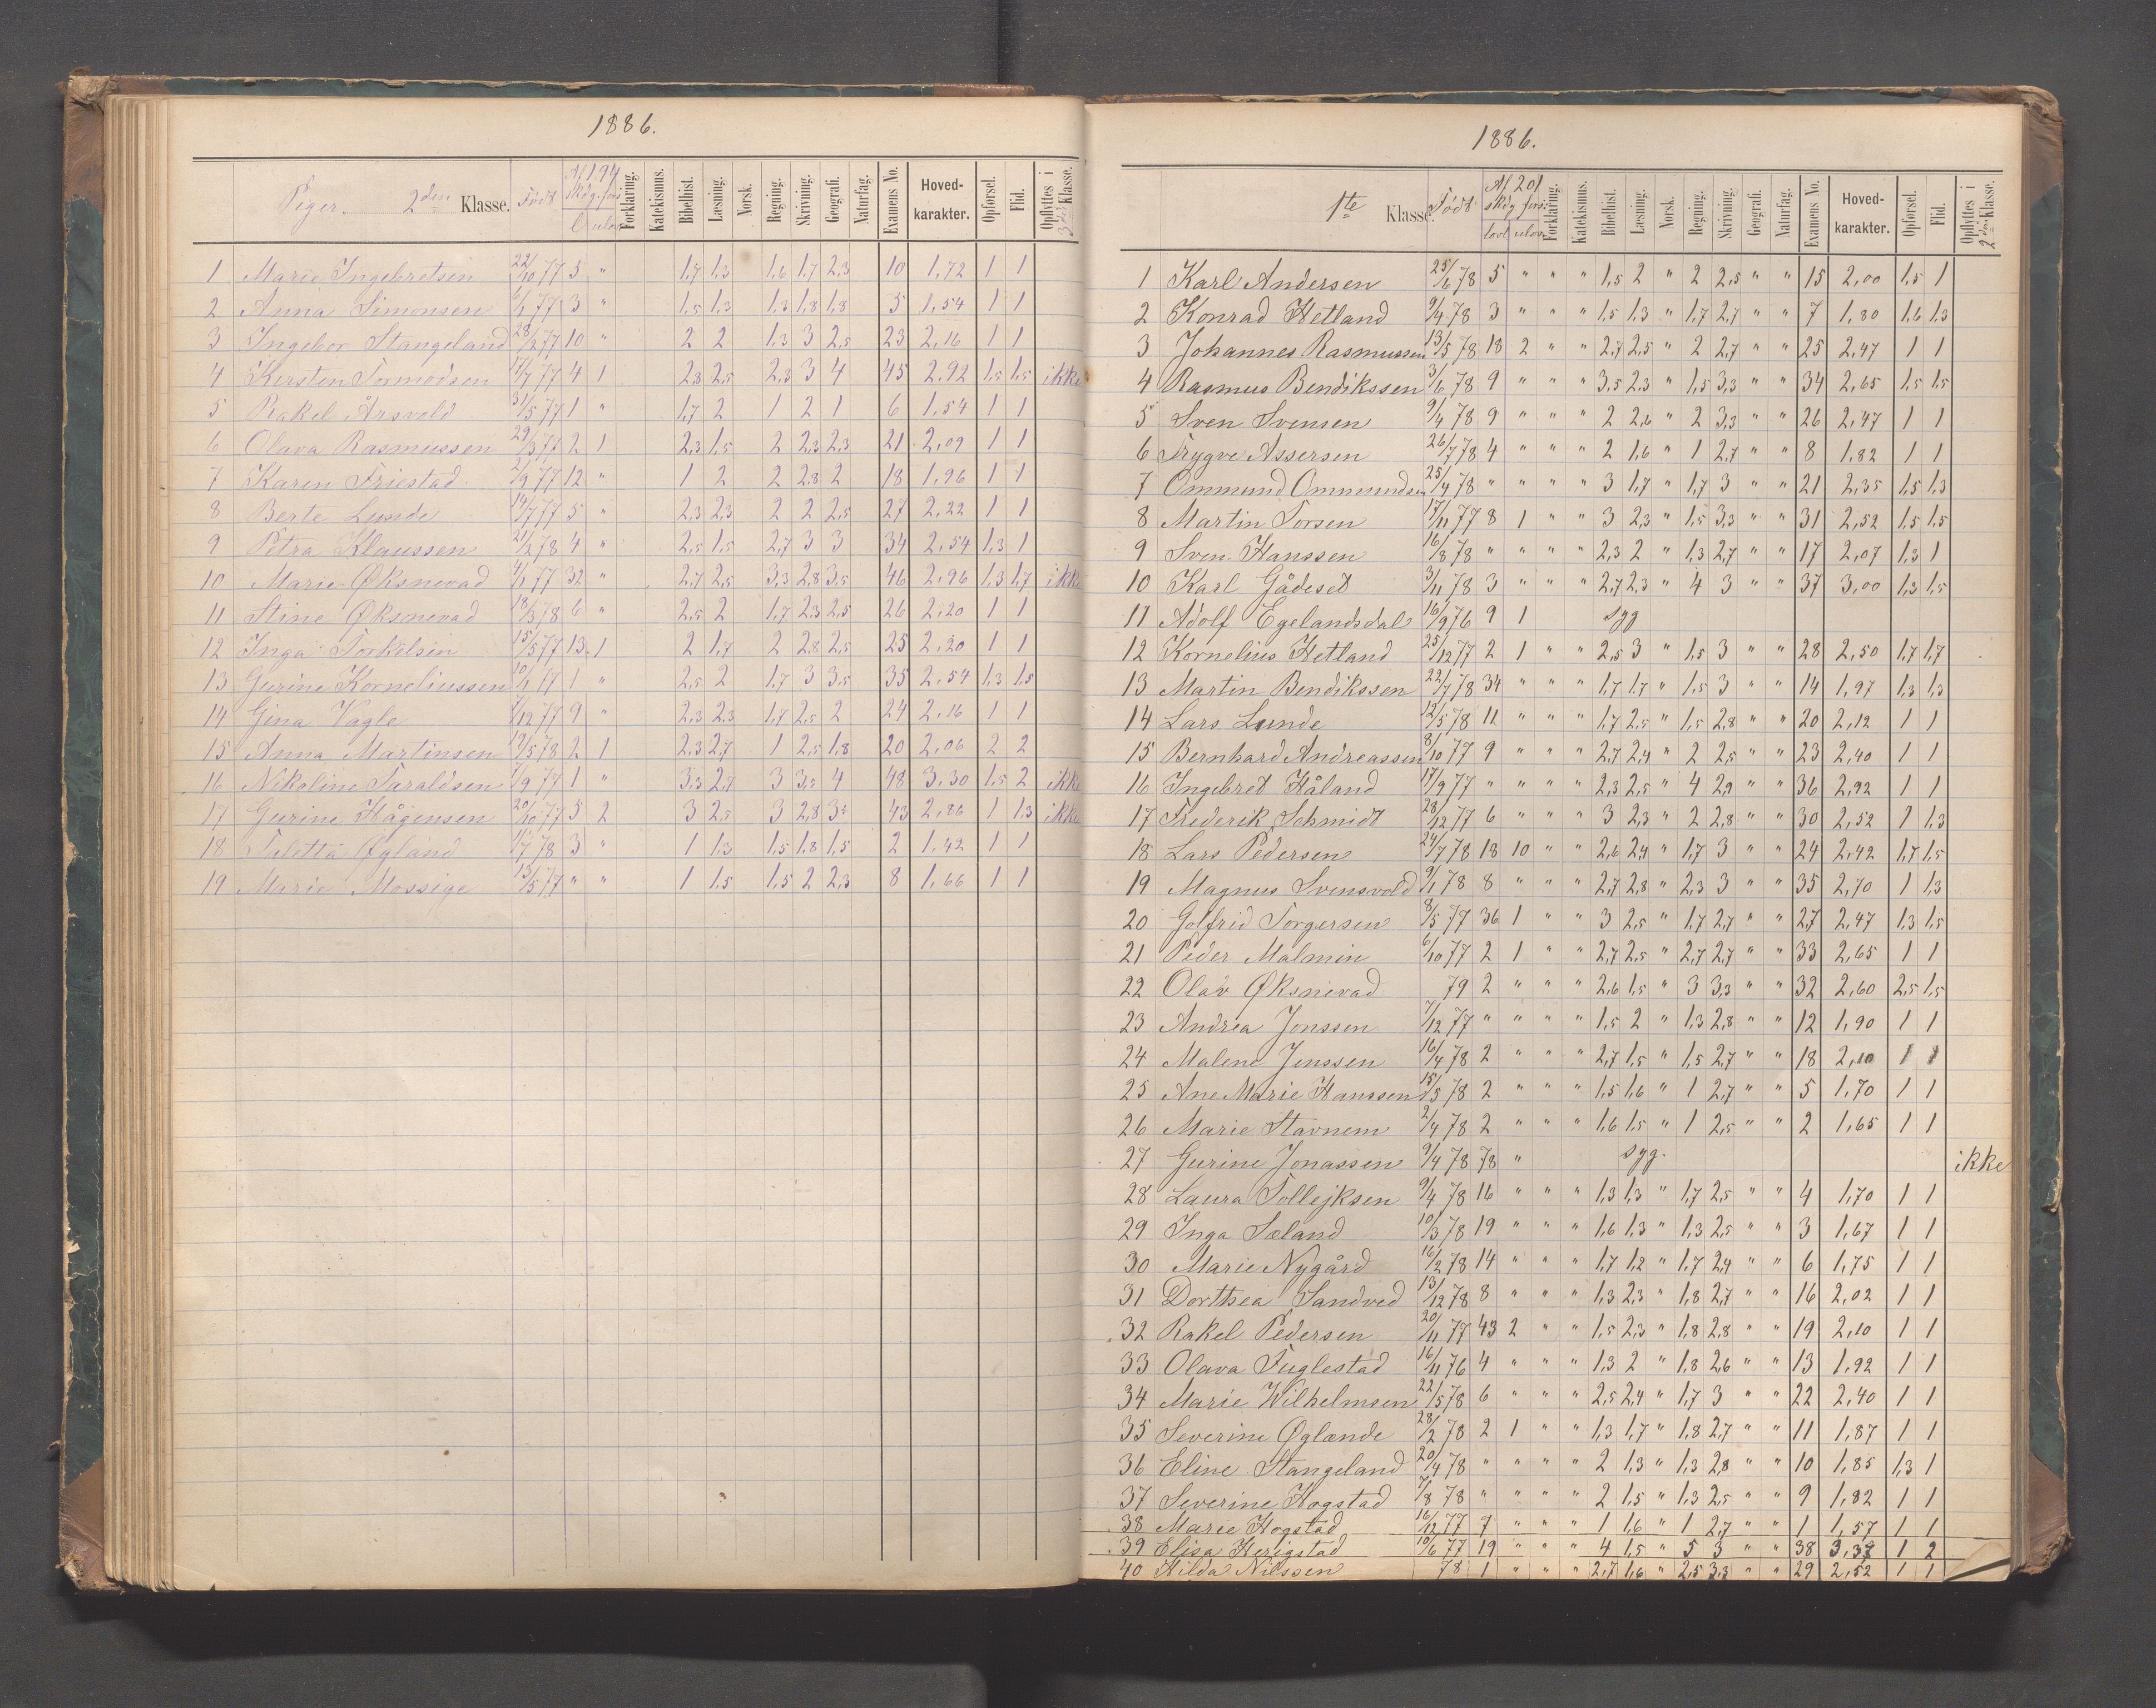 1886.
Piger. 2den Klasse. Født Af 194 skdg. fors. Forklaring. Katekismus. Bibelhist. Læsning. Norsk. Regning. Skrivning. Geografi. Naturfag. Examens No. Hoved-karakter. Opførsel. Flid. Opflyttes i 3die Klasse.
1 Marie Ingebretsen 22/10 77 5 " 1,7 1,3 1,6 1,7 2,3 10 1,72 1 1
2 Anna Simonsen 6/1 77 3 " 1,5 1,3 1,3 1,8 1,8 5 1,54 1 1
3 Ingebor Stangeland 28/2 77 10 " 2 2 1,3 3 2,5 23 2,16 1 1
4 Kersten Tormodsen 17/7 77 4 1 2,8 2,5 2,3 3 4 45 2,92 1,5 1,5 ikke
5 Rakel Årsvold 31/5 77 1 " 1,7 2 1 2 1 6 1,54 1 1
6 Olava Rasmussen 29/3 77 2 1 2,3 1,5 2 2,3 2,3 21 2,09 1 1
7 Karen Friestad 2/9 77 12 " 1 2 2 2,8 2 18 1,96 1 1
8 Berte Lunde 14/7 77 5 " 2,3 2,3 2 2 2,5 27 2,22 1 1
9 Petra Klaussen 21/2 78 4 " 2,5 1,5 2,7 3 3 34 2,54 1,3 1
10 Marie Øksnevad 4/1 77 32 " 2,7 2,5 3,3 2,8 3,5 46 2,96 1,3 1,7 ikke
11 Stine Øksnevad 18/3 78 6 " 2,5 2 1,7 2,3 2,5 26 2,20 1 1
12 Inga Torkelsen 15/5 77 13 1 2 1,7 2 2,8 2,5 25 2,20 1 1
13 Gurine Korneliussen 10/1 77 1 " 2,5 2 1,7 3 3,5 35 2,54 1,3 1,5
14 Gina Vagle /12 77 9 " 2,3 2,3 1,7 2,5 2 24 2,16 1 1
15 Anna Martinsen 19/5 78 2 1 2,3 2,7 1 2,5 1,8 20 2,06 2 2
16 Nikoline Taraldsen /9 77 1 " 3,3 2,7 3 3,5 4 48 3,30 1,5 2 ikke
17 Gurine Hågensen 20/10 77 5 2 3 2,5 3 2,8 3 43 2,86 1 1,3 ikke
18 Teletta Øgland /7 78 3 " 1 1,3 1,5 1,8 1,5 2 1,42 1 1
19 Marie Mossige 13/5 77 " " 1 1,5 1,5 2 2,3 8 1,66 1 1
1886.
1te Klasse. Født Af 201 skdg fors. lovl ulovl Forklaring. Katekismus. Bibelhist. Læsning. Norsk. Regning. Skrivning. Geografi. Naturfag. Examens No. Hoved-karakter. Opførsel. Flid. Opflyttes i 2den Klasse.
1 Karl Andersen 25/6 78 5 " " " 1,5 2 " 2 2,5 " " 15 2,00 1,5 1
2 Konrad Hetland 9/4 78 3 " " " 1,5 1,3 " 1,7 2,7 " " 7 1,80 1,6 1,3
3 Johannes Rasmussen 13/5 78 18 2 " " 2,7 2,5 " 2 2,7 " " 25 2,47 1 1
4 Rasmus Bendikssen 3/6 78 9 " " " 3,5 2,3 " 1,5 3,3 " " 34 2,65 1,5 1,5
5 Sven Svensen 9/4 78 9 " " " 2 2,6 " 2 3,3 " " 26 2,47 1 1
6 Trygve Assersen 26/7 78 4 " " " 2 1,6 " 1 2,7 " " 8 1,82 1 1
7 Ommund Ommundsen 25/4 78 " " " " 3 1,7 " 1,7 3 " " 21 2,35 1,5 1,3
8 Martin Torsen 17/11 77 8 1 " " 3 2,3 " 1,5 3,3 " " 31 2,52 1,5 1,5
9 Sven Hanssen 16/8 78 " " " " 2,3 2 " 1,3 2,7 " " 17 2,07 1,3 1
10 Karl Gådeset 3/11 78 3 " " " 2,7 2,3 " 4 3 " " 37 3,00 1,3 1,5
11 Adolf Egelandsdal 16/9 76 9 1 syg
12 Kornelius Hetland 25/12 77 2 1 " " 2,5 3 " 1,5 3 " " 28 2,50 1,7 1,7
13 Martin Bendikssen 22/7 78 34 " " " 1,7 1,7 " 1,5 3 " " 14 1,97 1,3 1,3
14 Lars Lunde 12/5 78 11 " " " 1,7 2,5 " 1,5 2,8 " " 20 2,12 1 1
15 Bernhard Andreassen 8/10 77 9 " " " 2,7 2,4 " 2 2,5 " " 23 2,40 1 1
16 Ingebret Håland 17/9 77 " " " " 2,3 2,5 " 4 2,9 " " 36 2,92 1 1
17 Frederik Schmidt 28/12 77 6 " " " 3 2,3 " 2 2,8 " " 30 2,52 1 1,3
18 Lars Pedersen 24/7 78 18 10 " " 2,6 2,4 " 1,7 3 " " 24 2,42 1,7 1,5
19 Magnus Svensvold 9/1 78 8 " " " 2,7 2,8 " 2,3 3 " " 35 2,70 1 1,3
20 Golfrid Torgersen 8/5 77 36 1 " " 3 2,5 " 1,7 2,7 " " 27 2,47 1,3 1,5
21 Peder Malmin 6/10 77 2 1 " " 2,7 2,5 " 2,7 2,7 " " 33 2,65 1 1
22 Olav Øksnevad 79 2 " " " 2,6 1,5 " 3 3,3 " " 32 2,60 2,5 1,5
23 Andrea Jonssen 7/12 77 " " " " 1,5 2 " 1,3 2,8 " " 12 1,90 1 1
24 Malene Jenssen 16/4 78 2 " " " 2,7 1,5 " 1,5 2,7 " " 18 2,10 1 1
25 Ane Marie Hanssen 15/5 78 2 " " " 1,5 1,6 " 1 2,7 " " 5 1,70 1 1
26 Marie Stavnem 2/4 78 2 " " " 1,6 1,5 " 1 2,5 " " 2 1,65 1 1
27 Gurine Jonassen 9/4 78 78 " syg. ikke
28 Laura Tollejksen 9/4 78 16 " " " 1,3 1,3 " 1,7 2,5 " " 4 1,70 1 1
29 Inga Sæland 10/3 78 19 " " " 1,6 1,3 " 1,3 2,5 " " 3 1,67 1 1
30 Marie Nygård 16/2 78 14 " " " 1,7 1,2 " 1,7 2,4 " " 6 1,75 1 1
31 Dorthea Sandved 13/12 78 8 " " " 1,3 2,3 " 1,8 2,7 " " 16 2,02 1 1
32 Rakel Pedersen 20/11 77 43 2 " " 1,5 2,3 " 1,8 2,8 " " 19 2,10 1 1
33 Olava Fuglestad 16/11 76 4 " " " 1,3 2 " 1,8 2,6 " " 13 1,92 1 1
34 Marie Wilhelmsen 22/5 78 6 " " " 2,5 2,4 " 1,7 3 " " 22 2,40 1 1
35 Severine Øglænde 28/2 78 2 1 " " 1,3 1,7 " 1,8 2,7 " " 11 1,87 1 1
36 Eline Stangeland 20/4 78 " " " " 2 1,3 " 1,3 2,8 " " 10 1,85 1,3 1
37 Severine Hogstad 7/8 78 " " " " 2 1,5 " 1,3 2,5 " " 9 1,82 1 1
38 Marie Hogstad 16/12 77 7 " " " 1 1,6 " 1 2,7 " " 1 1,57 1 1
39 Elisa Herigstad 10/6 77 19 " " " 4 1,5 " 5 3 " " 38 3,37 1 2
40 Hilda Nilssen 78 1 " " " 2,7 1,6 " 2,5 3,3 " " 29 2,52 1 1